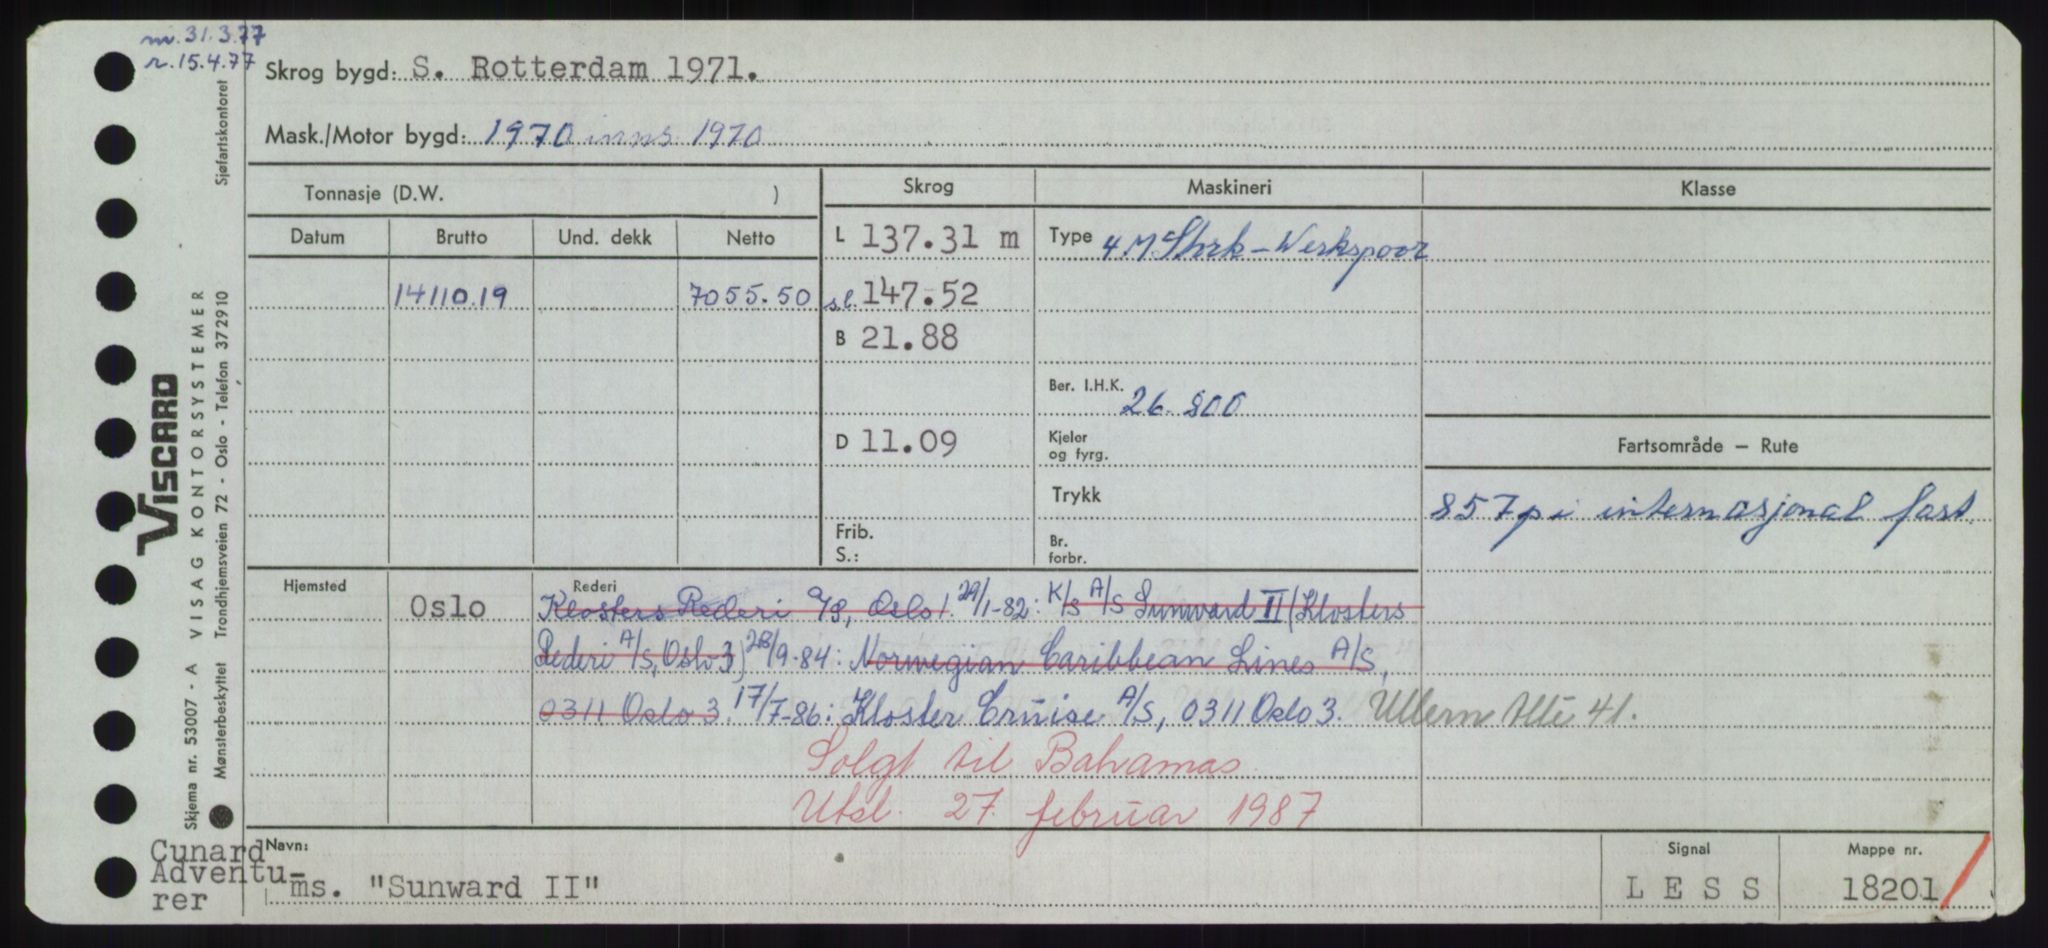 m. 31.3.77
r. 15.4.77
Skrog bygd: S. Rotterdam 1971.
Mask./Motor bygd: 1970 inns 1970
Tonnasje (D.W. )
Skrog
Maskineri
Klasse
Datum Brutto Und. dekk Netto
L 137.31 m
Type 4 M Stork-Werkspoor
14110.19 7055.50
s.l. 147.52
B 21.88
Ber. I.H.K. 26.800
D 11.09
Kjeler og fyrg.
Fartsområde — Rute
Trykk
857 p i internasjonal fart.
Frib.
S.:
Br. forbr.
Hjemsted
Oslo
Rederi
Klosters Rederi A/S, Oslo 1. 29/1-82: K/S A/S Sunward II (Klosters
Rederi A/S, Oslo 3) 28/9-84: Norwegian Caribbean Lines A/S,
0311 Oslo 3. 17/7-86: Kloster Cruise A/S, 0311 Oslo 3. Ullern Alle 41.
Solgt til Bahamas
Utsl. 27. februar 1987
Navn:
ms. "Sunward II"
Signal
LESS
Mappe nr.
18201
Cunard
Adventu-
rer
VISCARD
Skjema nr. 53007 - A VISAG KONTORSYSTEMER
Mønsterbeskyttet Trondhjemsveien 72 - Oslo - Telefon 372910 Sjøfartskontoret